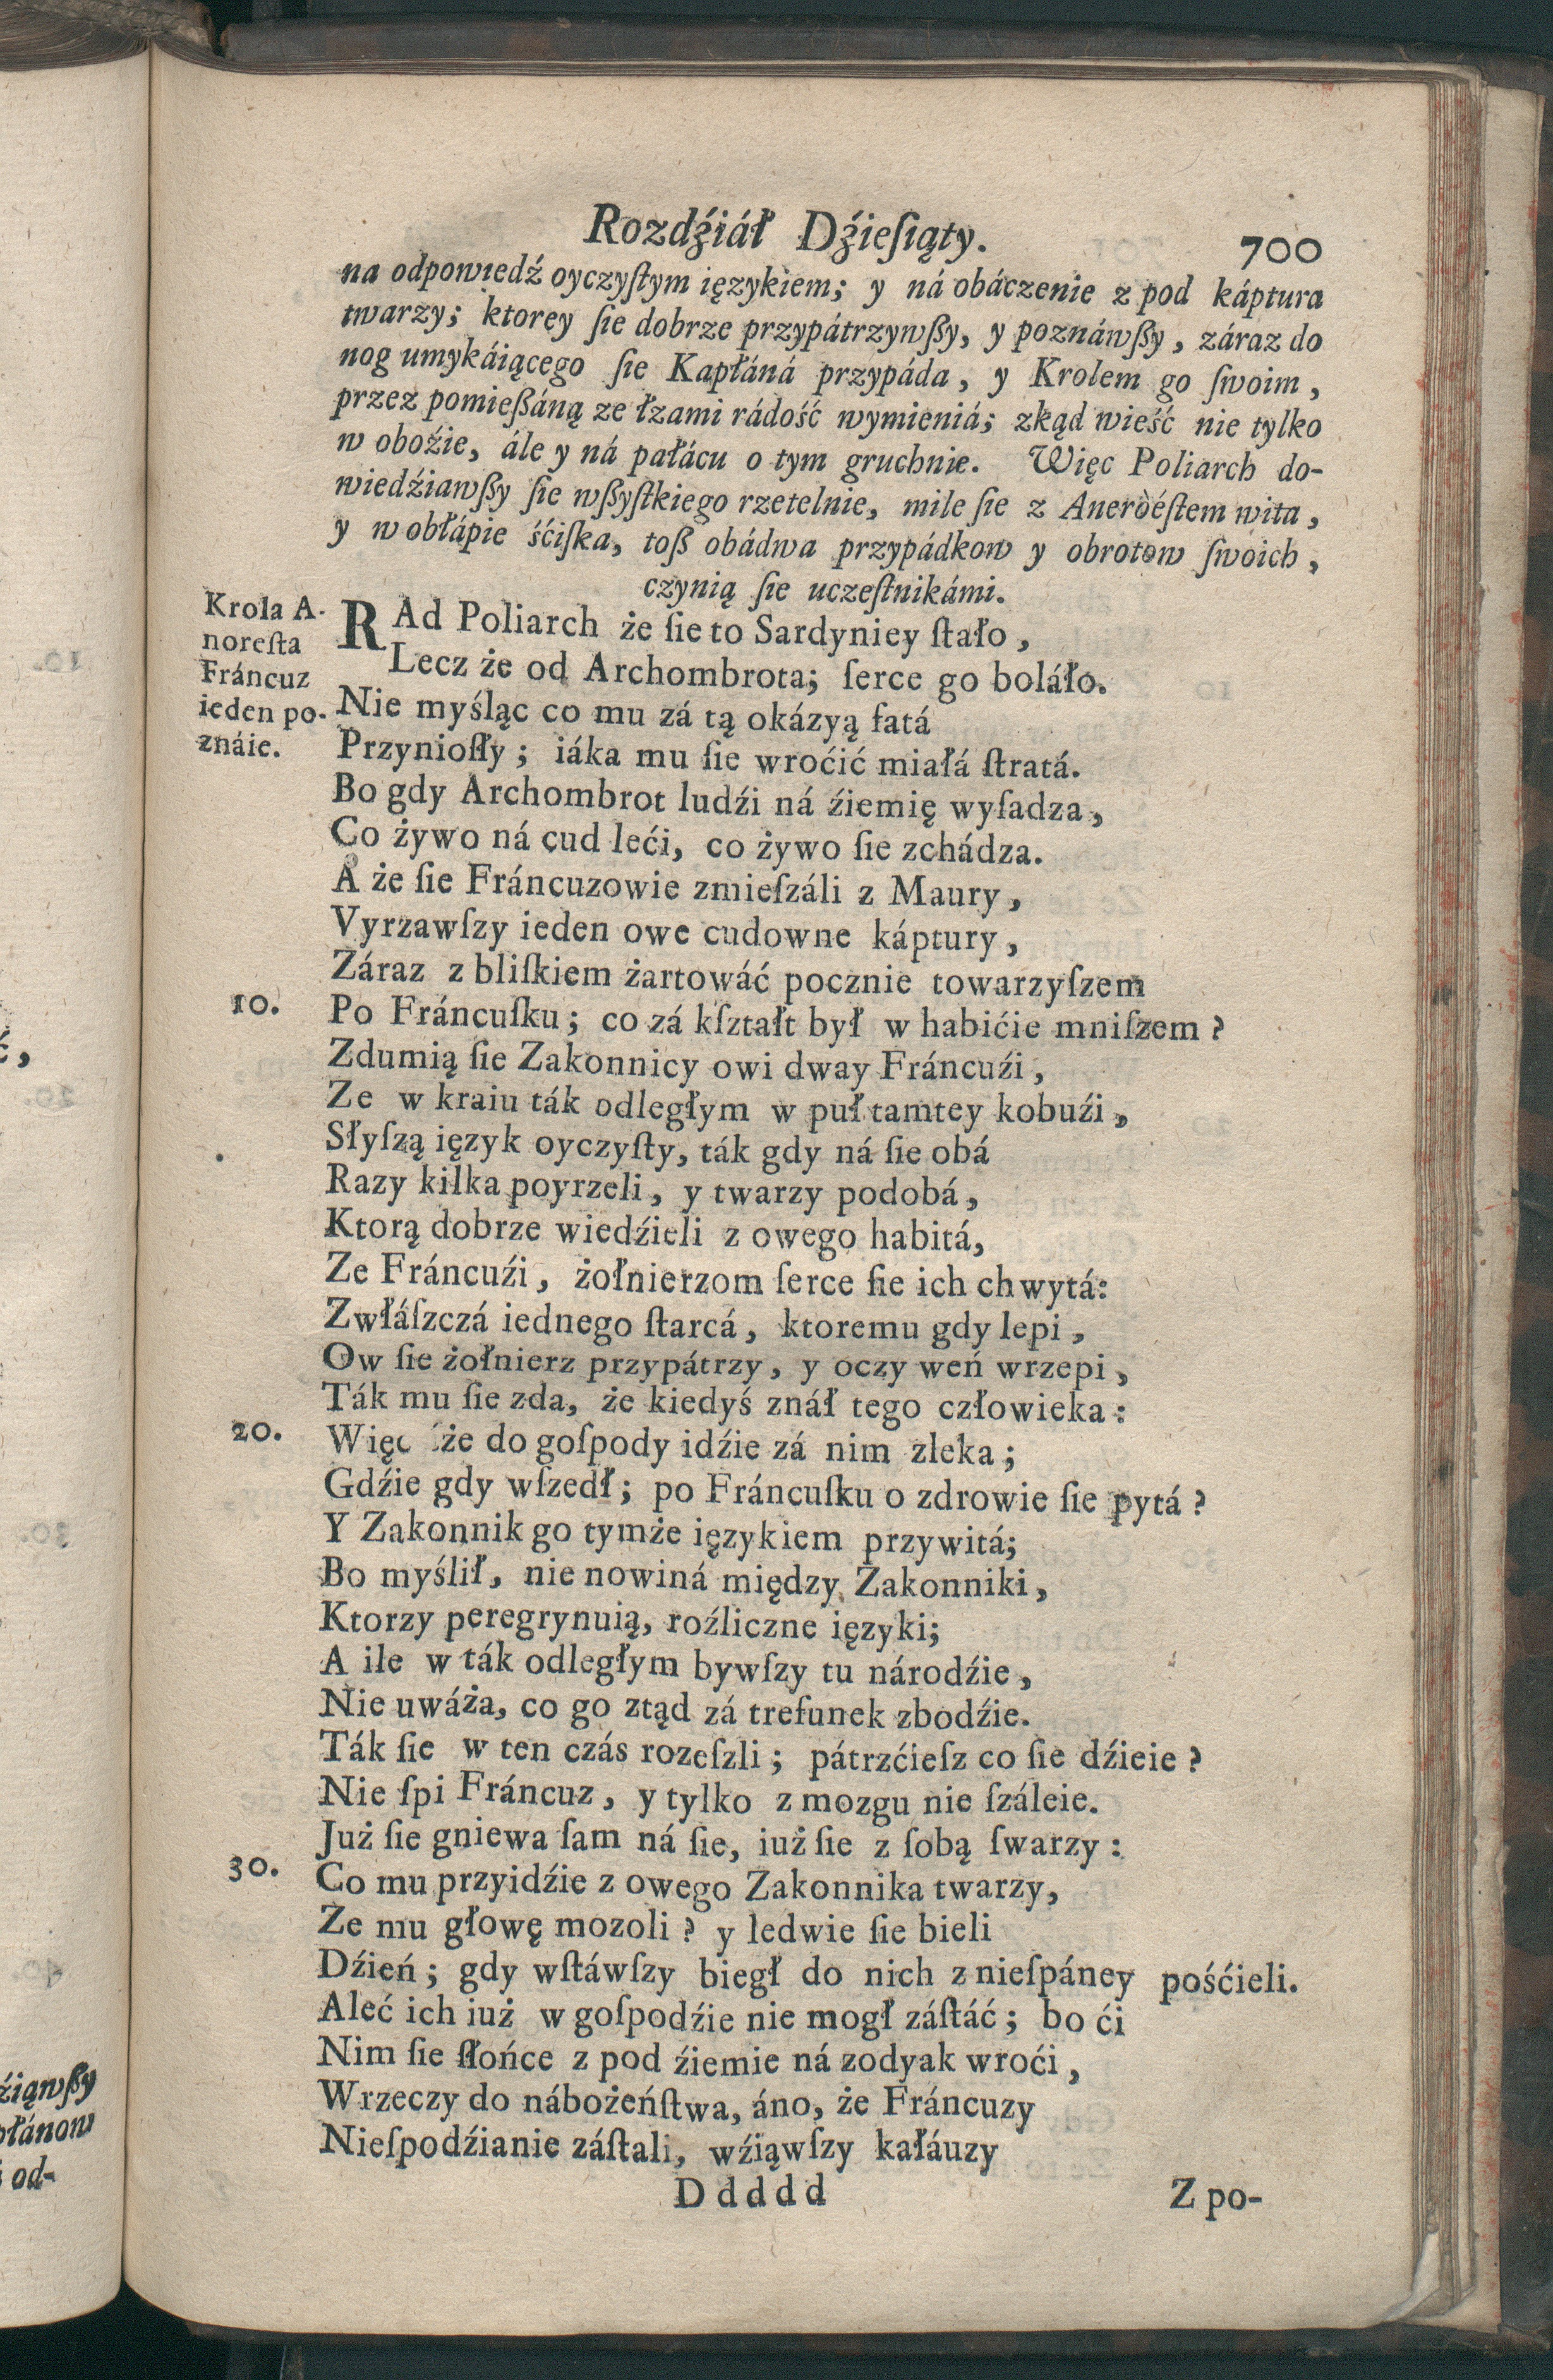 ć,
źiąwßy
płánow
i od-
Rozdźiáł Dźieſiąty.
700
na odpowiedź oyczyſtym ięzykiem; y ná obáczenie z pod káptura
twarzy; ktorey ſie dobrze przypátrzywßy, y poznáwßy, záraz do
nog umykáiącego ſie Kapłáná przypáda, y Krolem go ſwoim,
przez pomießáną ze łzami rádość wymieniá; zkąd wieść nie tylko
w oboźie, ále y ná pałácu o tym gruchnie. Więc Poliarch do-
wiedźiawßy ſie wßyſtkiego rzetelnie, mile ſie z Aneroéſtem wita,
y w obłápie śćiſka, toß obádwa przypádkow y obrotow ſwoich,
czynią ſie uczeſtnikámi.
Krola A-
noreſta
Fráncuz
ieden po-
znáie.
RAd Poliarch że ſie to Sardyniey ſtało,
Lecz że od Archombrota; ſerce go boláło.
Nie myśląc co mu zá tą okázyą fatá
Przynioſły; iáka mu ſie wroćić miałá ſtratá.
Bo gdy Archombrot ludźi ná źiemię wyſadza,
Co żywo ná cud leći, co żywo ſie zchádza.
A że ſie Fráncuzowie zmieſzáli z Maury,
Vyrzawſzy ieden owe cudowne káptury,
Záraz z bliſkiem żartowáć pocznie towarzyſzem
10. Po Fráncuſku; co zá kſztałt był w habićie mniſzem?
Zdumią ſie Zakonnicy owi dway Fráncuźi,
Ze w kraiu ták odległym w puł tamtey kobuźi,
Słyſzą ięzyk oyczyſty, ták gdy ná ſie obá
Razy kilka poyrzeli, y twarzy podobá,
Ktorą dobrze wiedźieli z owego habitá,
Ze Fráncuźi, żołnierzom ſerce ſie ich chwytá:
Zwłáſzczá iednego ſtarcá, ktoremu gdy lepi,
Ow ſie żołnierz przypátrzy, y oczy weń wrzepi,
Ták mu ſie zda, że kiedyś znáł tego człowieka:
20. Więc że do goſpody idźie zá nim zleka;
Gdźie gdy wſzedł; po Fráncuſku o zdrowie ſie pytá?
Y Zakonnik go tymże ięzykiem przywitá;
Bo myślił, nie nowiná między Zakonniki,
Ktorzy peregrynuią, roźliczne ięzyki;
A ile w ták odległym bywſzy tu národźie,
Nie uwáża, co go ztąd zá trefunek zbodźie.
Ták ſie w ten czás rozeſzli; pátrzćieſz co ſie dźieie?
Nie ſpi Fráncuz, y tylko z mozgu nie ſzáleie.
Już ſie gniewa ſam ná ſie, iuż ſie z ſobą ſwarzy:
30. Co mu przyidźie z owego Zakonnika twarzy,
Ze mu głowę mozoli? y ledwie ſie bieli
Dźień; gdy wſtáwſzy biegł do nich z nieſpáney pośćieli.
Aleć ich iuż w goſpodźie nie mogł záſtáć; bo ći
Nim ſie ſłońce z pod źiemie ná zodyak wroći,
Wrzeczy do nábożeńſtwa, áno, że Fráncuzy
Nieſpodźianie záſtali, wźiąwſzy kałáuzy
Ddddd
Z po-